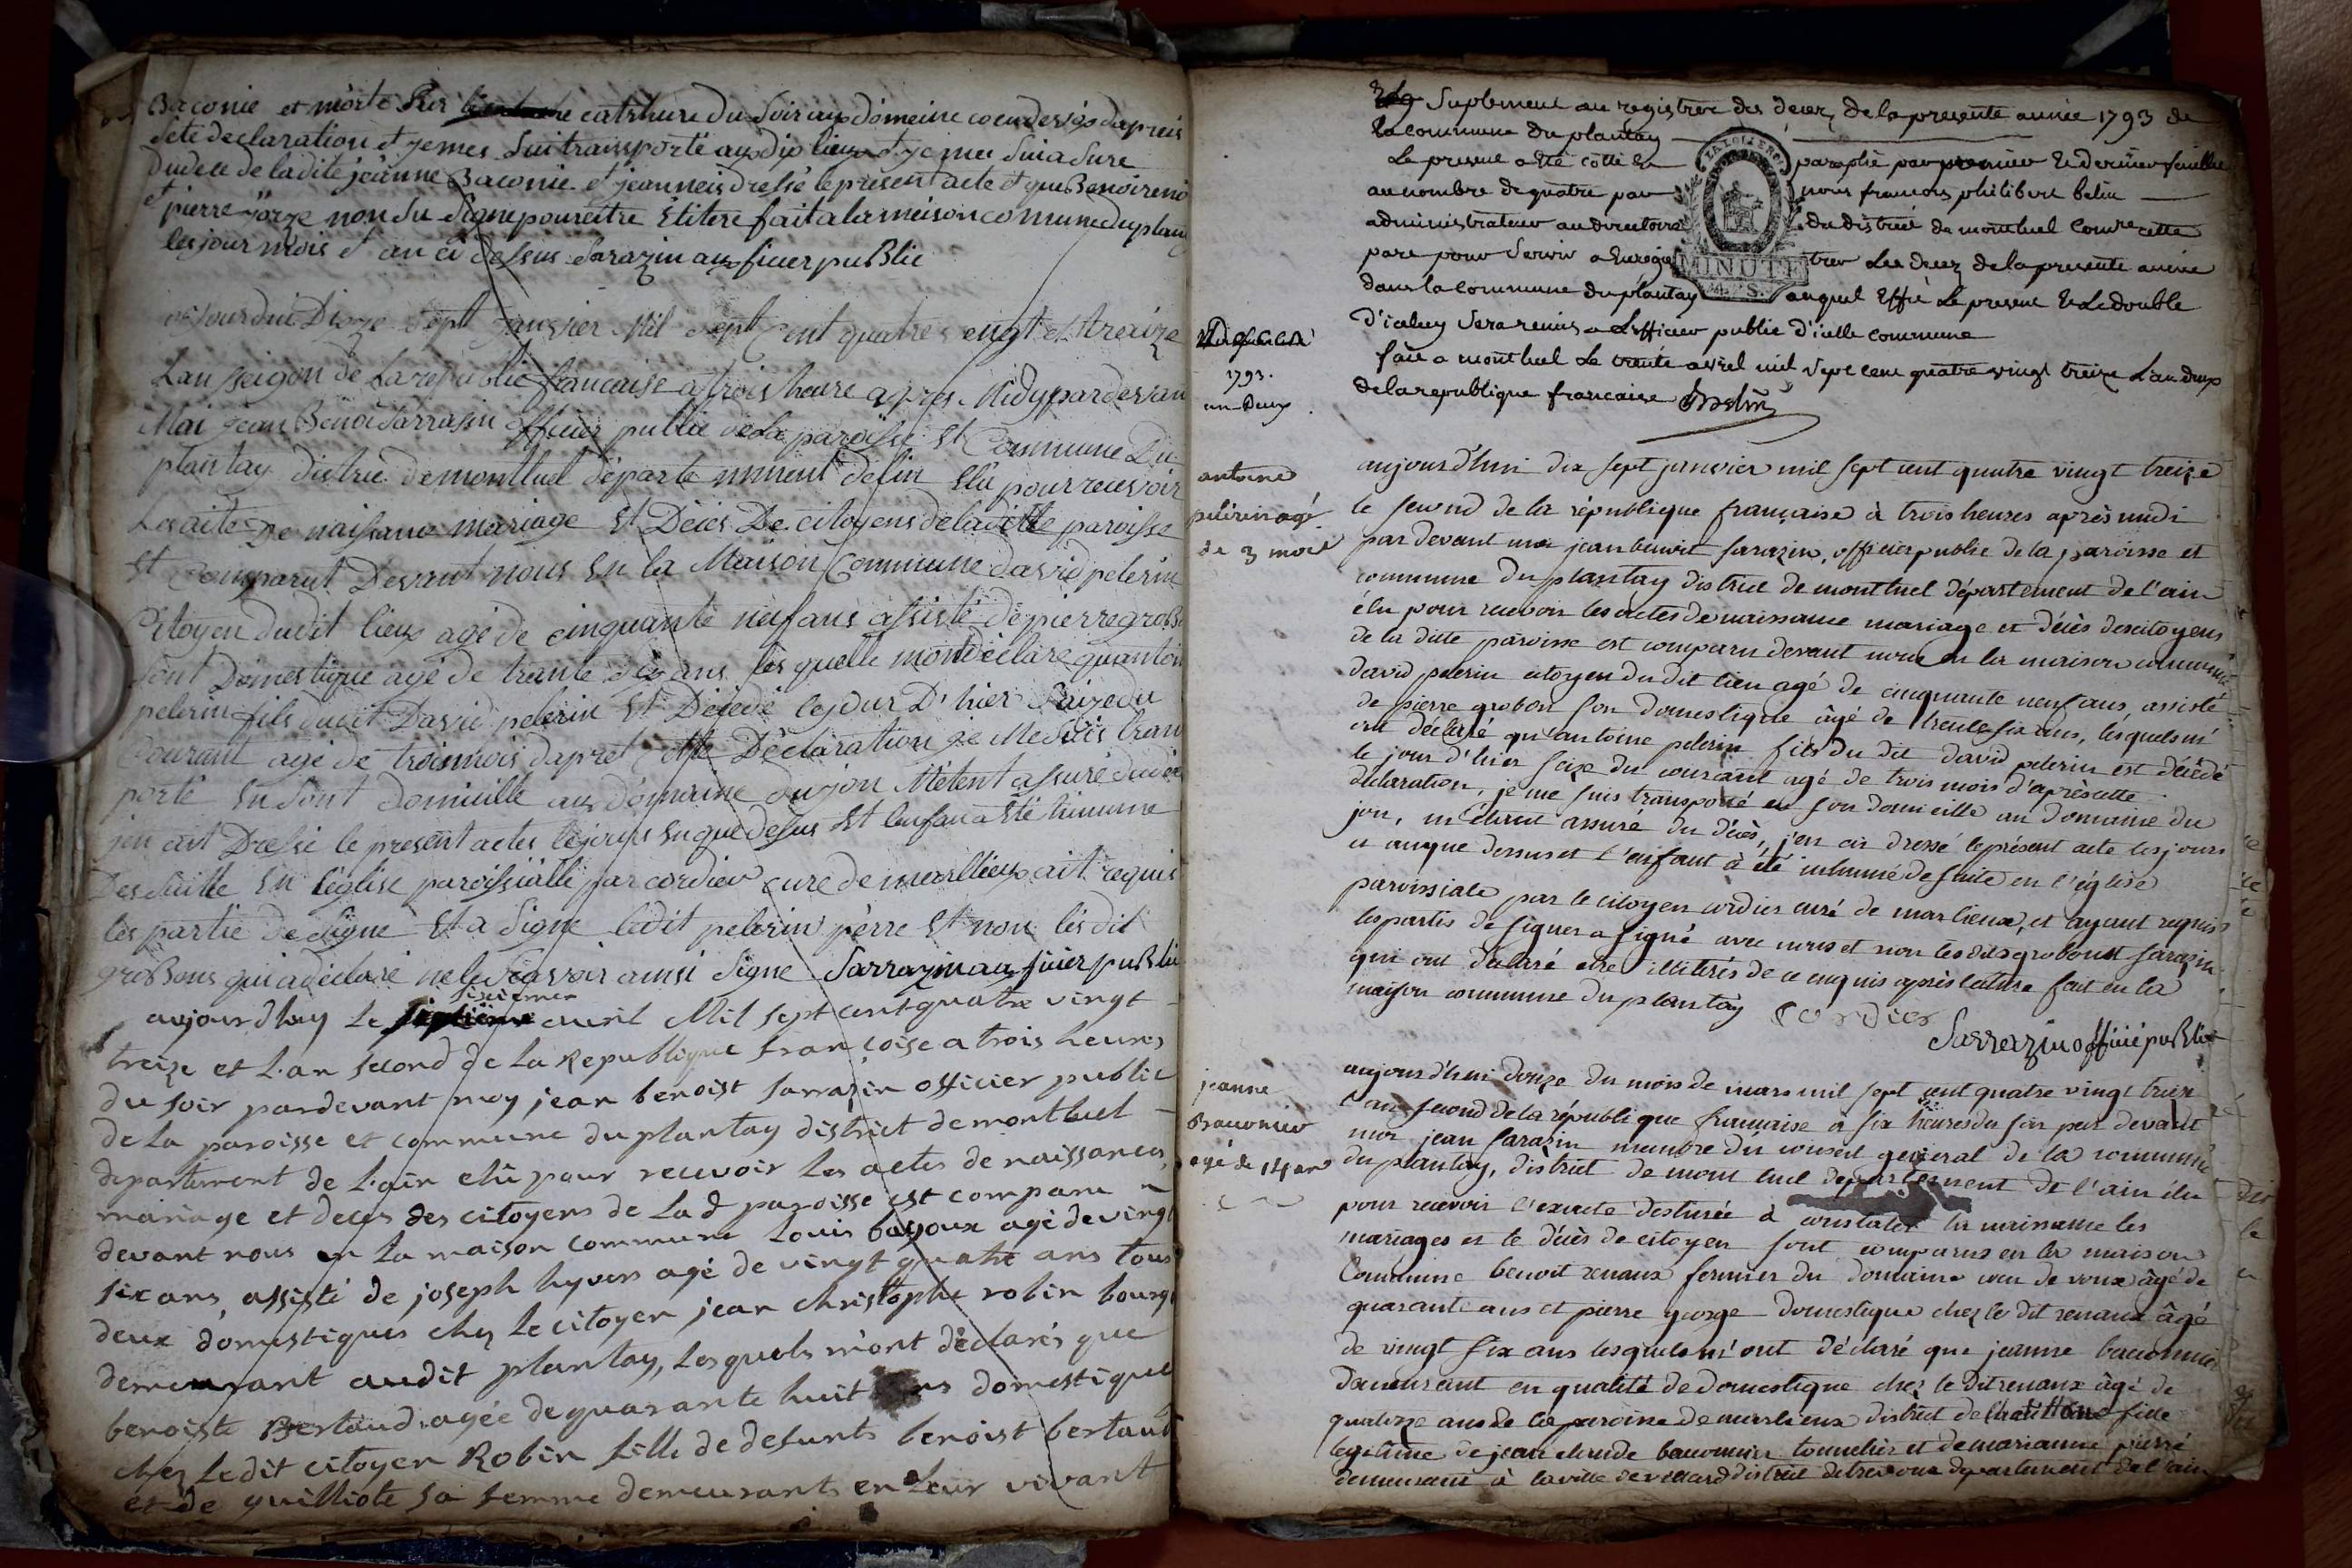 Baconie et morte hier catrheure du soir au domeine coeudevos dapreis
sete declaration et jemes sui transporté audis lieux et je mei sui asure
dudece de ladite jeanne Baconie et jeanneis dressé le présent acte et que Benoi reno
et pierre jorze non su signe pour être élitere fait a la meison comune du plan
les jour mois et an ci dessus Sarazin aufficier public
aujourdui Dizze sept Janvier Mil sept cent quatres vingt et treize
Lan segon de La republic francaise a trois heure apres Midy pardevan
Moi jean Benoi Sarrasin officier public de la paroisse et Commune Du
plantay distric de montluel departe mment delin Elu pour recevoir
Les acte De naissance mariage Et Déces De citoyens de la ditte paroisse
Et Comparut Devant nous En la Maison Commune david pelerin
Citoyen dudit lieux age de cinquante neuf ans assisté de pierre grobon
sont Domestique agé de trante six ans les quelle mont déclare quantoin
pelerin fils dudit David pelerin Et Décedé le jour D'hier Saize du
Courant age de troismois dapret cette Déclaration je Me suis tran
porté En sont domicille au domaine dujon Métent assuré du décé
jen ait Dressé le present actes les jours En que desus Et lenfan a Eté hinume
Des suitte En léglise paroissialle par cordier curé de marllieux ait requis
les partie de signe Et a Signe ledit pelerin pèrre Et non les dit
grobons qui a déclaré ne le scavoir ainsi Signe Sarrazin aufficier public
aujourdhuy le sixieme avril Mil sept cent quatre vingt
treize et l'an second de La Republique francoise a trois heures
du soir pardevant moy jean benoist sarrasin officier public
de La paroisse et commune du plantay district de montluel
departement de l'ain elu pour recevoir les actes de naissances,
mariage et deces des citoyens de Lad paroisse est comparu
devant nous en La maison commune Louis bajoux agé de vingt
six ans, assisté de joseph hyvers agé de vingt quatre ans tous
deux domestiques chez Le citoyen jean christophe robin bourg
demeurant audit plantay, Lesquels m'ont déclarés que
benoiste Bertaud agée de quarante huit ans domestique
chez Ledit citoyen Robin fille de defunts benoist bertaud
et de guilliote sa femme demeurants en Leur vivant
Suplement au registre des décez de la presente année 1793 de
la commune du plantay
Le present a été cotté et paraphé par premier et dernier feuillet
au nombre de quatre par nous francois philibert belin
administrateur au directoire du district de montluel comre cette
pare pour servir a Enregistrer Les decez de la presente année
dans la commune du plantay auquel Effet Le present et Le double
d'iceluy sera remis a L'officier public d'icelle commune
fait a montluel Le trente avril mil sept cent quatre vingt treize L'an deux
de la republique francaise Belin
MINUTE
1793.
an Deux
antoine
pelerin agé
de 3 mois
aujourd'hui dix sept janvier mil sept cent quatre vingt treize
le second de la république française à trois heures après midi
par devant moi jean benoit sarazin, officier public de la paroisse et
commune du plantay district de montluel département de l'ain
élu pour recevoir les actes de naissance mariage et décès des citoyens
de la ditte paroisse est comparu devant nous en la maison commune
david pelerin citoyen du dit lieu agé de cinquante neuf ans, assisté
de pierre grobon son domestique âgé de trente six ans, lesquels m'
ont déclaré qu'antoine pelerin fils du dit david pelerin est décédé
le jour d'hier seize du courant agé de trois mois d'après cette
déclaration, je me suis transporté en son domicille au domaine du
jon, m'étant assuré du décès, j'en ai dressé le présent acte les jours
et an que dessus et l'enfant à été inhumé de suite en l'église
paroissiale par le citoyen cordier curé de marlieux, et ayant requis
les partis de signer a signé avec nous et non les dits grobon et sarazin
qui ont déclaré etre illitérés de ce enquis après lecture fait en la
maison commune du plantay Cordier
Sarrazin officié public
jeanne
Braconnier
agé de 14 ans
aujourd'hui douze du mois de mars mil sept cent quatre vingt treize
l'an second de la république française à six heures du soir par devant
moi jean sarazin membre du conseil général de la commune
du plantay, district de mont luel département de l'ain élu
pour recevoir l'exacte destinée à constater la naissance les
mariages et le décès de citoyen sont comparus en la maison
Commune benoit renaux fermier du domaine coeu de voux âgé de
quarante ans et pierre george domestique chez le dit renaux âgé
de vingt six ans lesquels m'ont déclaré que jeanne baconnier
Demeurant en qualité de domestique chez le dit renaux âgé de
quatorze ans de la paroisse de marlieux district de chatillon fille
légitime de jean claude baconnier tonnelier et de marianne pierre
demeurant à la ville de villard district de trevoux departement de l'ain